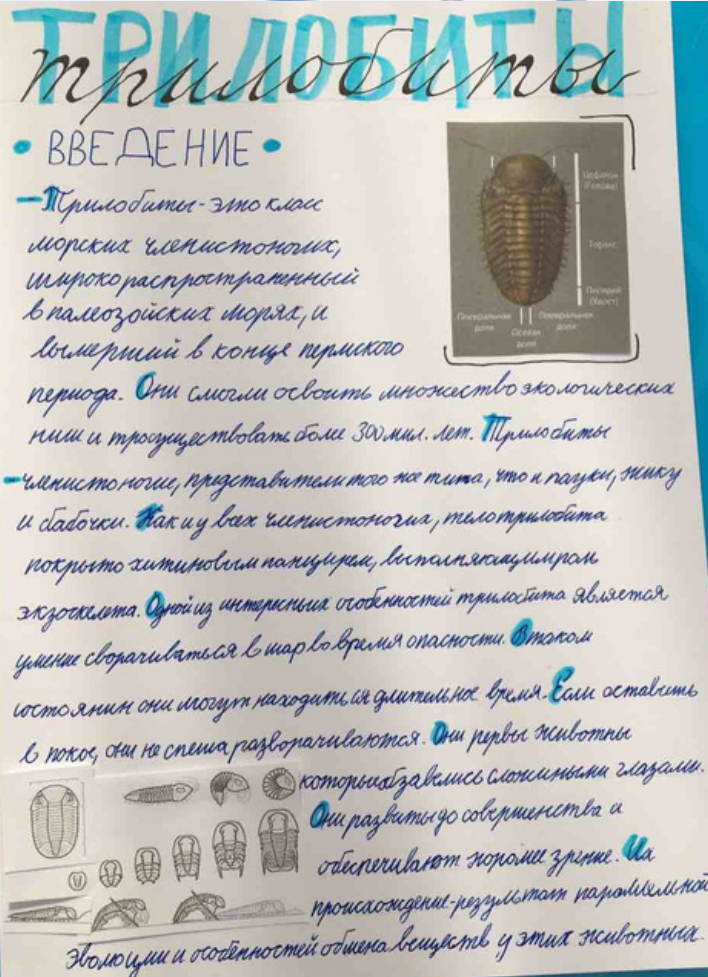 ТРИЛОБИТЫ
трилобиты
• ВВЕДЕНИЕ •
- Трилобиты - это класс
морских членистоногих,
широко распространенный
в палеозойских морях, и
вымерший в конце пермского
периода. Они смогли освоить множество экологических
ниш и просуществовать более 300 мил. лет. Трилобиты
- членистоногие, представители того же типа, что и пауки, жуки
и бабочки. Как и у всех членистоногих, тело трилобита
покрыто хитиновым панцирем, выполняющим роль
экзоскелета. Одной из интересных особенностей трилобита является
умение сворачиваться в шар во время опасности. В таком
состоянии они могут находиться длительное время. Если оставить
в покое, они не спеша разворачиваются. Они первы животны
которы обзавелись сложными глазами.
Они развиты до совершенства и
обеспечивают хорошее зрение. Их
происхождение - результат параллельной
эволюции и особенностей обмена веществ у этих животных.
Цефалон
(Голова)
Торакс
Пигидий
(Хвост)
Плевральная
доля
Осевая
доля
Плевральная
доля